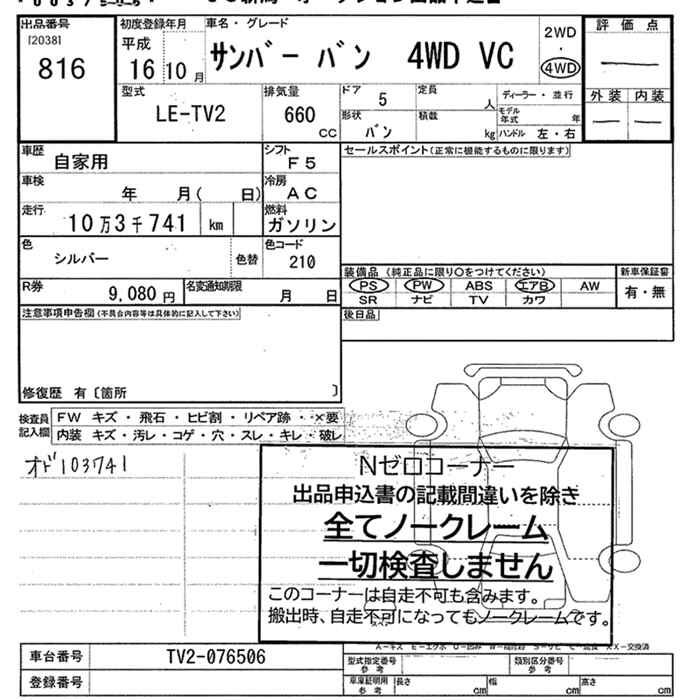 出品番号
[2038]
816
初度登録年月
平成
16 10月
車名・グレード
サンバー バン 4WD VC
2WD
・
4WD
評価点
外装 内装
型式
LE-TV2
排気量
660
CC
ドア
5
定員
人
ディーラー・並行
モデル年式 年
形状
バン
積載
kg
ハンドル 左・右
車歴
自家用
シフト
F5
セールスポイント(正常に機能するものに限ります)
車検
年 月( 日)
冷房
AC
走行
10万3千741 km
燃料
ガソリン
色
シルバー
色替
色コード
210
装備品(純正品に限り〇をつけてください)
新車保証書
PS PW ABS エアB AW
有・無
SR ナビ TV カワ
R券
9,080円
名変通知期限
月 日
注意事項申告欄(不具合内容等は具体的に記入して下さい)
後日品
修復歴 有〔箇所 〕
検査員記入欄
FW キズ・飛石・ヒビ割・リペア跡・×要
内装 キズ・汚レ・コゲ・穴・スレ・キレ・破レ
オド103741
Nゼロコーナー
出品申込書の記載間違いを除き
全てノークレーム
一切検査しません
このコーナーは自走不可も含みます。
搬出時、自走不可になってもノークレームです。
車台番号
TV2-076506
登録番号
型式指定番号
参考
類別区分番号
参考
車庫証明用
参考
長さ cm
幅 cm
高さ cm